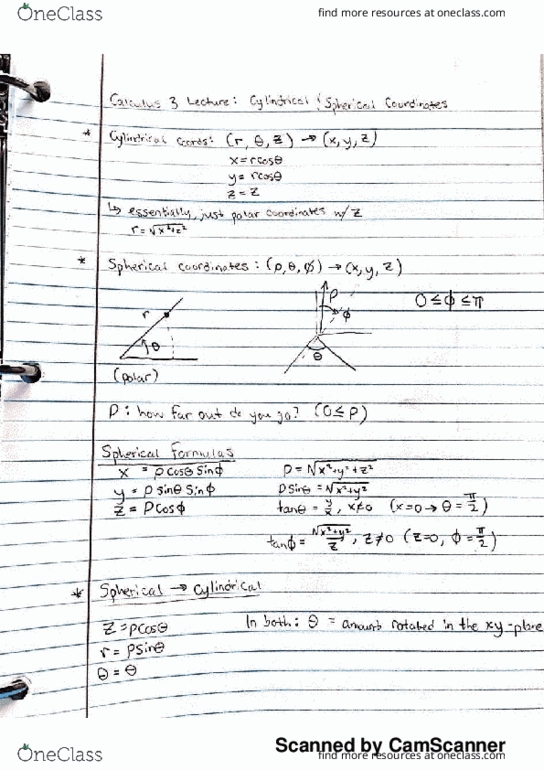 OneClass
find more resources at oneclass.com
Calculus 3 Lecture: Cylindrical & Spherical Coordinates
* Cylindrical coords: (r, θ, z) → (x, y, z)
x = rcosθ
y = rcosθ
z = z
↳ essentially, just polar coordinates w/ z
r = √x²+z²
* Spherical coordinates: (ρ, θ, φ) → (x, y, z)
r
θ
(polar)
ρ
φ
θ
0 ≤ φ ≤ π
ρ: how far out do you go? (0 ≤ ρ)
Spherical Formulas
x = ρcosθ sinφ
y = ρ sinθ sinφ
z = ρcosφ
ρ = √x²+y²+z²
ρ sinθ = √x²+y²
tanθ = y/x, x≠0 (x=0 → θ = π/2)
tanφ = √x²+y²/z, z≠0 (z=0, φ = π/2)
* Spherical → Cylindrical
z = ρcosθ
r = ρsinθ
θ = θ
In both: θ = amount rotated in the xy-plane
Scanned by CamScanner
OneClass
find more resources at oneclass.com